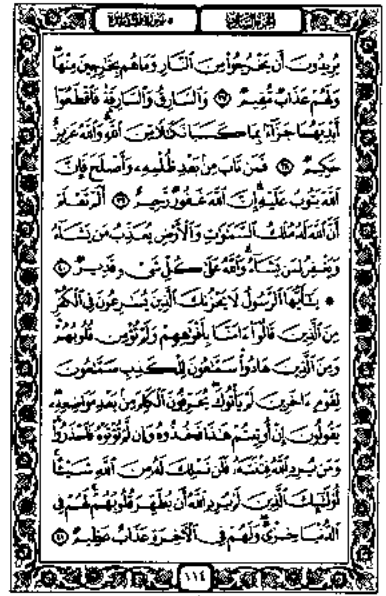 الجزء السادس
يُرِيدُونَ أَن يَخْرُجُوا۟ مِنَ ٱلنَّارِ وَمَا هُم بِخَٰرِجِينَ مِنْهَا ۖ
وَلَهُمْ عَذَابٌ مُّقِيمٌ ٣٧ وَٱلسَّارِقُ وَٱلسَّارِقَةُ فَٱقْطَعُوٓا۟
أَيْدِيَهُمَا جَزَآءًۢ بِمَا كَسَبَا نَكَٰلًا مِّنَ ٱللَّهِ ۗ وَٱللَّهُ عَزِيزٌ
حَكِيمٌ ٣٨ فَمَن تَابَ مِنۢ بَعْدِ ظُلْمِهِۦ وَأَصْلَحَ فَإِنَّ
ٱللَّهَ يَتُوبُ عَلَيْهِ ۗ إِنَّ ٱللَّهَ غَفُورٌ رَّحِيمٌ ٣٩ أَلَمْ تَعْلَمْ
أَنَّ ٱللَّهَ لَهُۥ مُلْكُ ٱلسَّمَٰوَٰتِ وَٱلْأَرْضِ يُعَذِّبُ مَن يَشَآءُ
وَيَغْفِرُ لِمَن يَشَآءُ ۗ وَٱللَّهُ عَلَىٰ كُلِّ شَىْءٍ قَدِيرٌ ٤٠
۞ يَٰٓأَيُّهَا ٱلرَّسُولُ لَا يَحْزُنكَ ٱلَّذِينَ يُسَٰرِعُونَ فِى ٱلْكُفْرِ
مِنَ ٱلَّذِينَ قَالُوٓا۟ ءَامَنَّا بِأَفْوَٰهِهِمْ وَلَمْ تُؤْمِن قُلُوبُهُمْ ۛ
وَمِنَ ٱلَّذِينَ هَادُوا۟ ۛ سَمَّٰعُونَ لِلْكَذِبِ سَمَّٰعُونَ
لِقَوْمٍ ءَاخَرِينَ لَمْ يَأْتُوكَ ۖ يُحَرِّفُونَ ٱلْكَلِمَ مِنۢ بَعْدِ مَوَاضِعِهِۦ ۖ
يَقُولُونَ إِنْ أُوتِيتُمْ هَٰذَا فَخُذُوهُ وَإِن لَّمْ تُؤْتَوْهُ فَٱحْذَرُوا۟ ۚ
وَمَن يُرِدِ ٱللَّهُ فِتْنَتَهُۥ فَلَن تَمْلِكَ لَهُۥ مِنَ ٱللَّهِ شَيْـًٔا ۚ
أُو۟لَٰٓئِكَ ٱلَّذِينَ لَمْ يُرِدِ ٱللَّهُ أَن يُطَهِّرَ قُلُوبَهُمْ ۚ لَهُمْ فِى
ٱلدُّنْيَا خِزْىٌ ۖ وَلَهُمْ فِى ٱلْءَاخِرَةِ عَذَابٌ عَظِيمٌ ٤١
١١٤